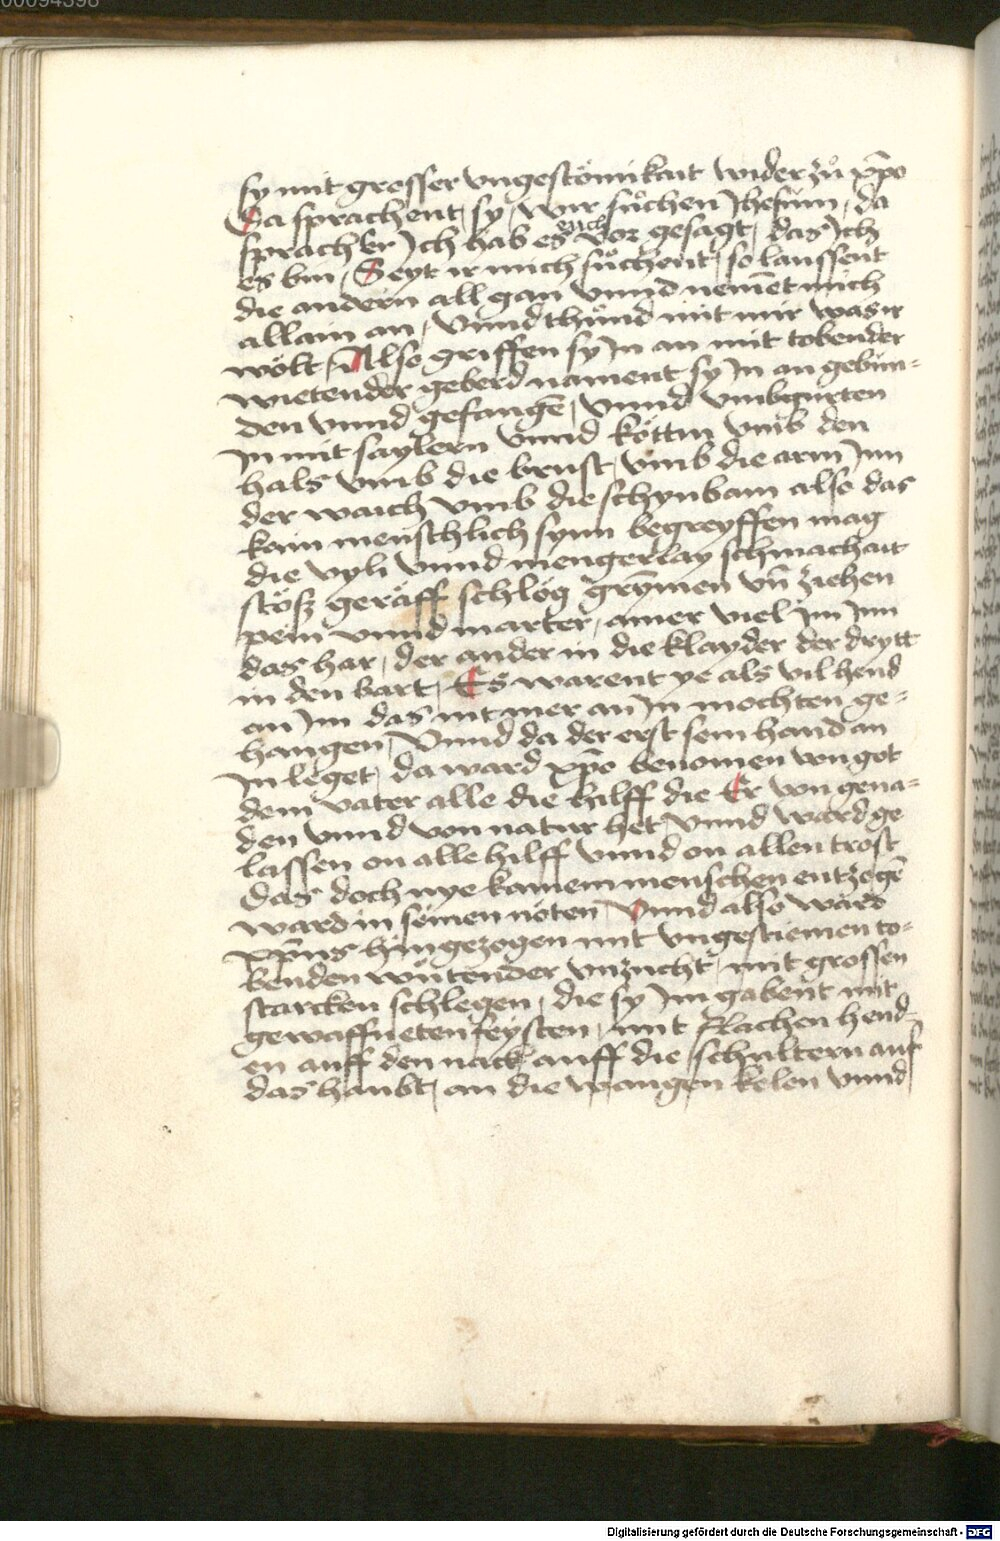 00094398
sy mit grosser vngestömikait wider zů xp̄o
Da sprachent sy / wir sůchen Jhesum / da
sprach er Jch hab es euch vor gesagt / das Jch
es bin / Seyt ir mich sůchent / so laussent
die andern all gan vnnd nemēt mich
allain an / vnnd thůnd mit mir was ir
wölt / Also griffen sy Jn an mit tobender
wietender geberd nament sy Jn an gebun-
den vnnd gefangē / vnnd vmbgurten
Jn mit saylern vnnd köttin vmb den
hals vmb die brust / vmb die arm Jnn
der waich vmb die schynbain also das
kain menschlich synn begreyffen mag
die vyli vnnd mengerlay schmachait
stösz geräff schlög grȳmen vn̄ ziehen
pein vnnd marter / ainer viel Jm Jnn
das har / der ander in die klayder der drytt
in den bart / Es warent ye als vil hend
an Jm das nit mer an Jn mochten ge-
hangen / Vnnd da der erst sein hand an
Jn leget / da ward xp̄o benomen von got
dem vater alle die hilff die Er von gena-
den vnnd von natur het / vnnd ward ge
lassen on alle hilff vnnd on allen trost
das doch nye kainem menschen entzogē
ward in seinen nöten / Vnnd also ward
xp̄us hingezogen mit vngestiemen to-
benden wůtender vnzucht / mit grossen
starcken schlegen / die sy Jm gabent mit
gewaffneten feysten / mit flachen hend-
en auff den nack auff die schultern auf
das haubt / an die wangen kelen vnnd
Digitalisierung gefördert durch die Deutsche Forschungsgemeinschaft - DFG